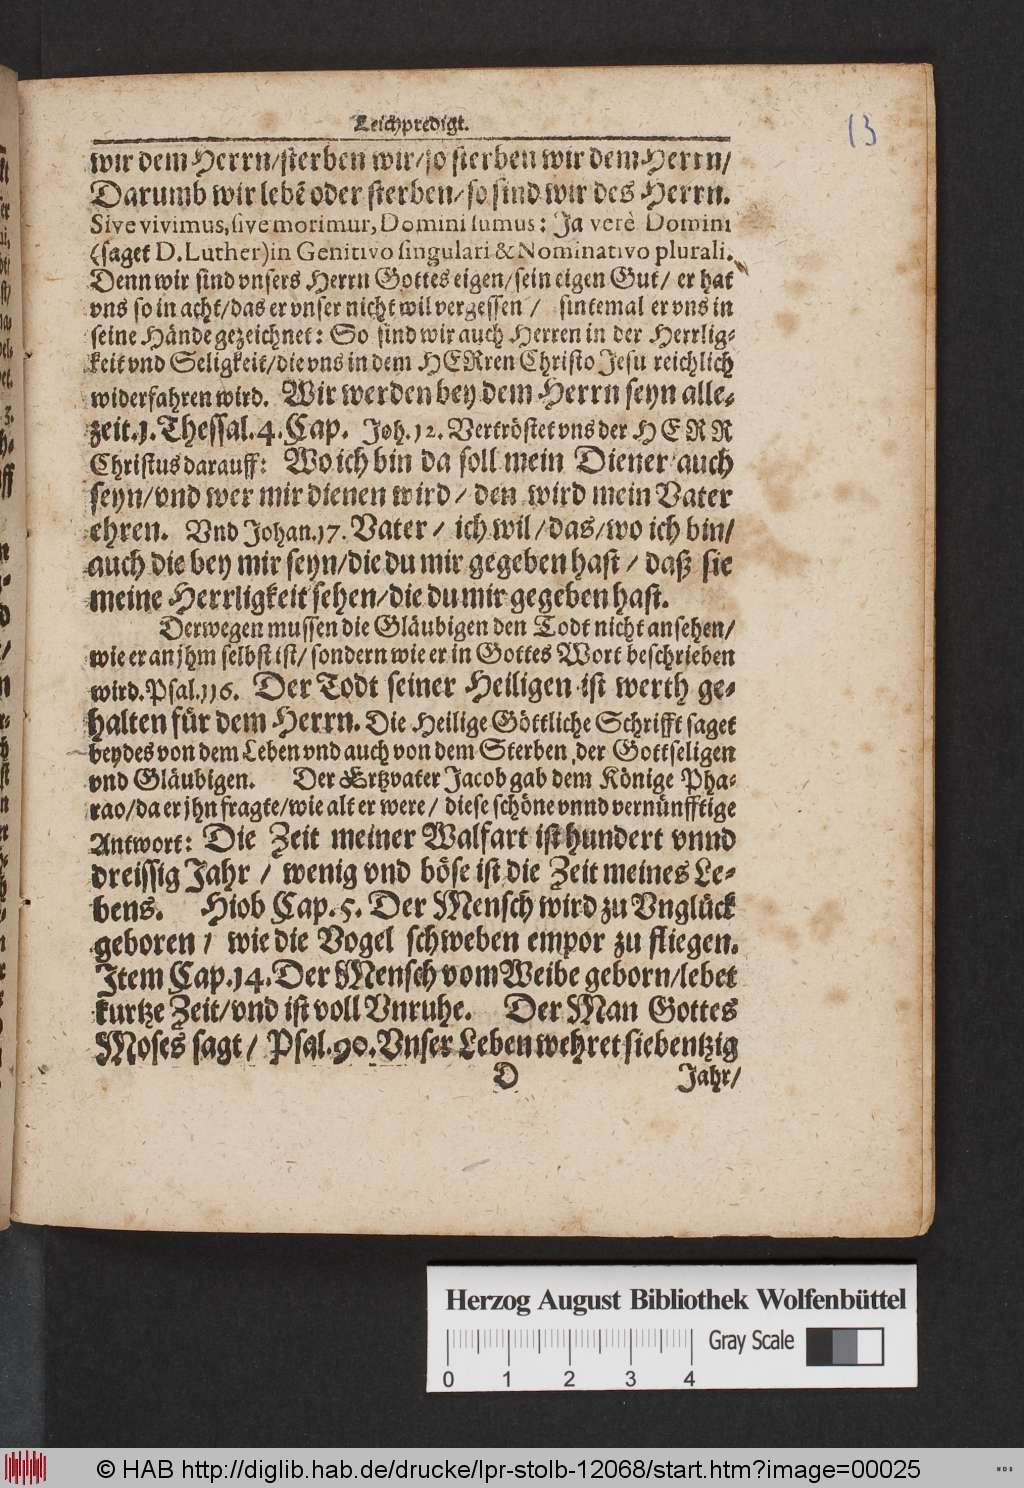 Leichpredigt.
13
wir dem Herrn/sterben wir/so sterben wir dem Herrn/
Darumb wir lebẽ oder sterben/so sind wir des Herrn.
Sive vivimus, sive morimur, Domini sumus: Ja verè Domini
(saget D. Luther) in Genitivo singulari & Nominativo plurali.
Denn wir sind vnsers Herrn Gottes eigen/sein eigen Gut/ er hat
vns so in acht/das er vnser nicht wil vergessen / sintemal er vns in
seine Hände gezeichnet: So sind wir auch Herren in der Herrlig-
keit vnd Seligkeit/die vns in dem HERren Christo Jesu reichlich
widerfahren wird. Wir werden bey dem Herrn seyn alle-
zeit. 1. Thessal. 4. Cap. Joh. 12. Vertröstet vns der HERR
Christus darauff: Wo ich bin da soll mein Diener auch
seyn/vnd wer mir dienen wird / den wird mein Vater
ehren. Vnd Johan. 17. Vater / ich wil/das/wo ich bin/
auch die bey mir seyn/die du mir gegeben hast / daß sie
meine Herrligkeit sehen/die du mir gegeben hast.
Derwegen mussen die Gläubigen den Todt nicht ansehen/
wie er an jhm selbst ist/ sondern wie er in Gottes Wort beschrieben
wird. Psal. 116. Der Todt seiner Heiligen ist werth ge-
halten für dem Herrn. Die Heilige Göttliche Schrifft saget
beydes von dem Leben vnd auch von dem Sterben der Gottseligen
vnd Gläubigen. Der Ertzvater Jacob gab dem Könige Pha-
rao/da er jhn fragte/wie alt er were/ diese schöne vnnd vernünfftige
Antwort: Die Zeit meiner Walfart ist hundert vnnd
dreissig Jahr / wenig vnd böse ist die Zeit meines Le-
bens. Hiob Cap. 5. Der Mensch wird zu Vnglück
geboren / wie die Vogel schweben empor zu fliegen.
Item Cap. 14. Der Mensch vom Weibe geborn/lebet
kurtze Zeit/vnd ist voll Vnruhe. Der Man Gottes
Moses sagt / Psal. 90. Vnser Leben wehret siebentzig
D Jahr/
Herzog August Bibliothek Wolfenbüttel
Gray Scale
0 1 2 3 4
© HAB http://diglib.hab.de/drucke/lpr-stolb-12068/start.htm?image=00025